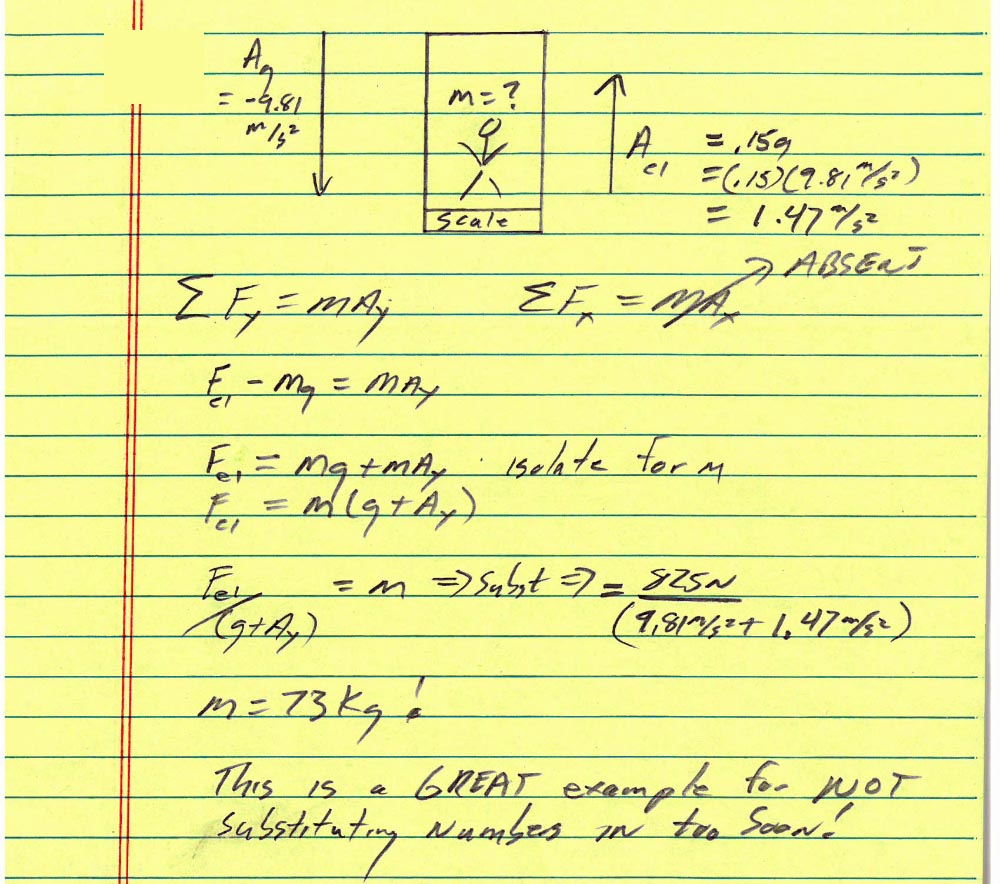 A_g
= -9.81
m/s²
m = ?
scale
A_el = .15g
= (.15)(9.81 m/s²)
= 1.47 m/s²
ΣF_y = mA_y ΣF_x = mA_x → ABSENT
F_el - mg = mA_y
F_el = mg + mA_y · isolate for m
F_el = m(g + A_y)
F_el/(g + A_y) = m => subst => = 825N/(9.81 m/s² + 1.47 m/s²)
m = 73 Kg !
This is a GREAT example for NOT
substituting numbers in too soon!